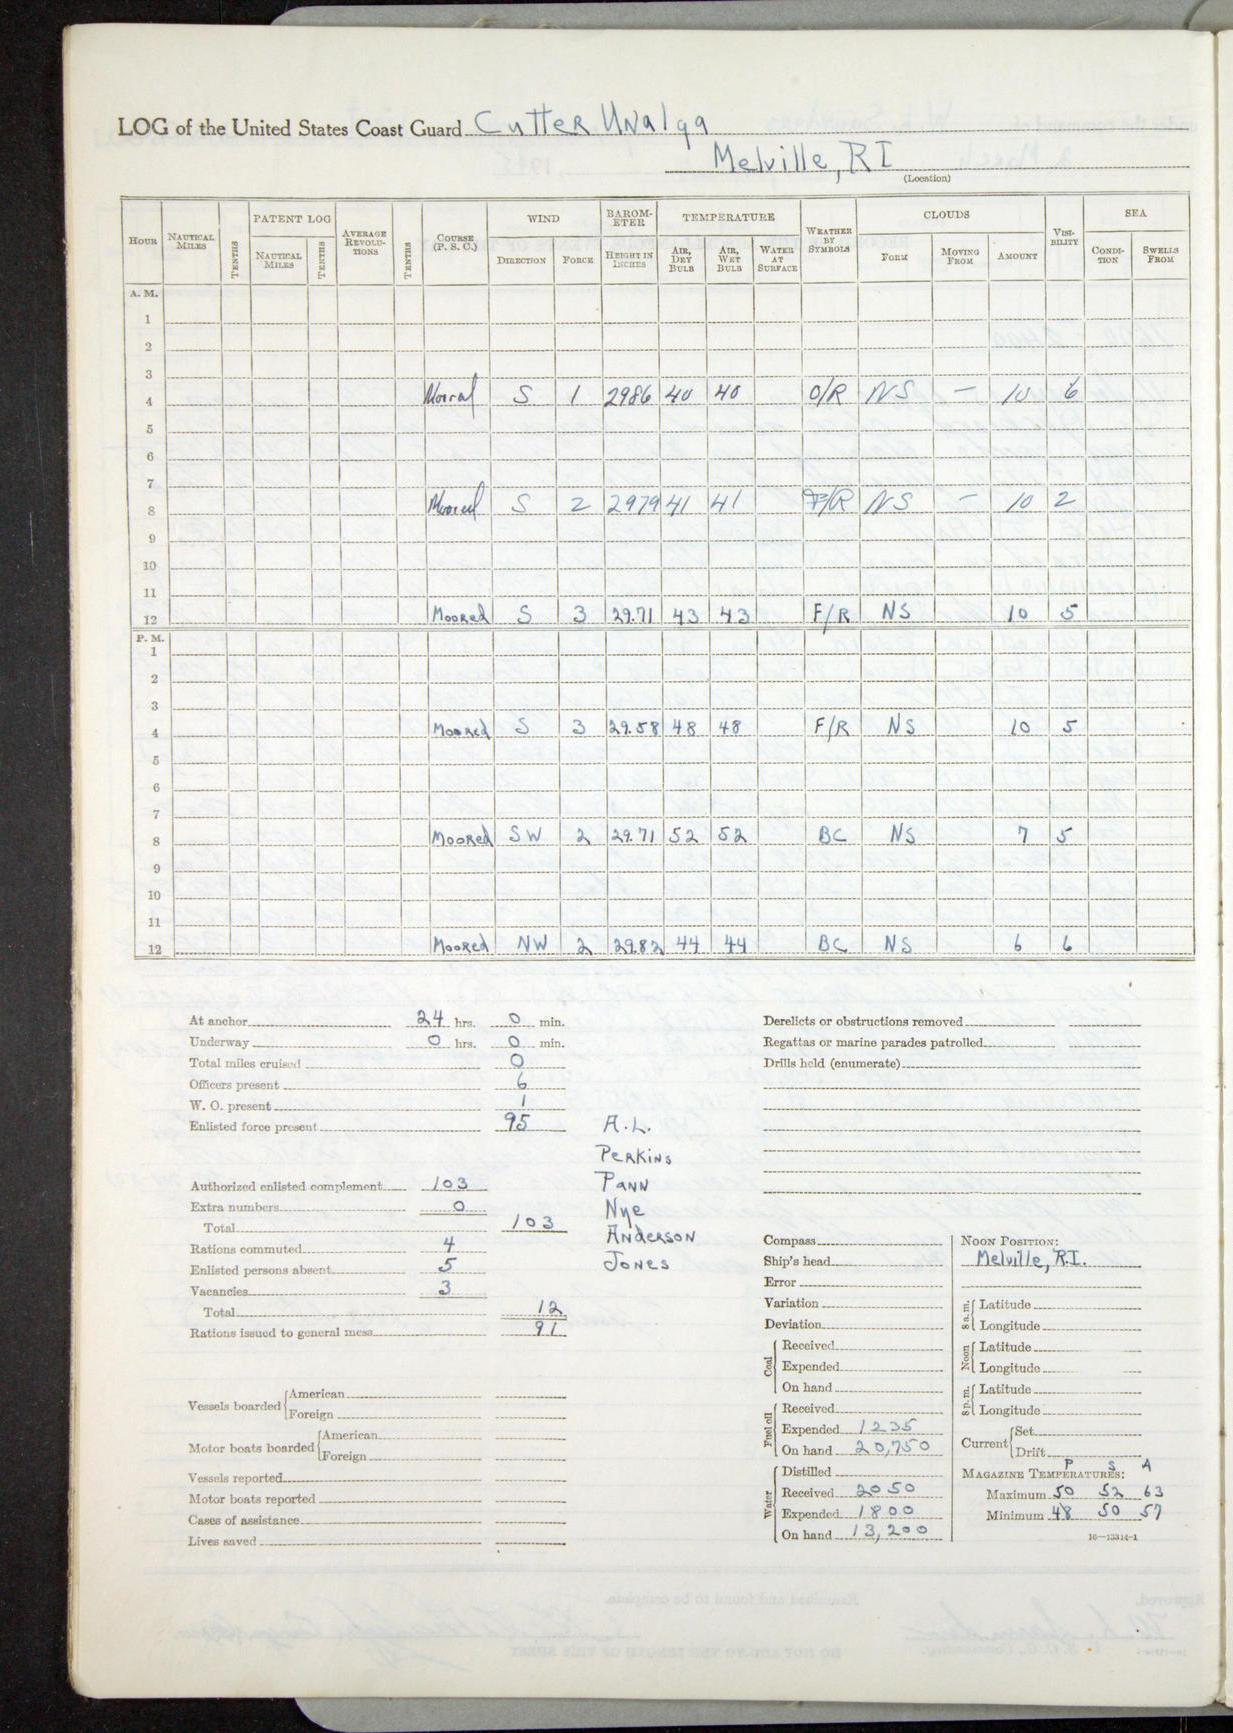 LOG of the United States Coast Guard Cutter Unalga
Melville, RI
(Location)
HOUR NAUTICAL MILES TENTHS PATENT LOG NAUTICAL MILES TENTHS AVERAGE REVOLU-TIONS TENTHS COURSE (P. S. C.) WIND DIRECTION FORCE BAROM-ETER HEIGHT IN INCHES TEMPERATURE AIR, DRY BULB AIR, WET BULB WATER AT SURFACE WEATHER BY SYMBOLS CLOUDS FORM MOVING FROM AMOUNT VISI-BILITY SEA CONDI-TION SWELLS FROM
A. M.
1
2
3
4 Moored S 1 2986 40 40 O/R NS — 10 6
5
6
7
8 Moored S 2 2979 41 41 F/R NS — 10 2
9
10
11
12 Moored S 3 29.71 43 43 F/R NS 10 5
P. M.
1
2
3
4 Moored S 3 29.58 48 48 F/R NS 10 5
5
6
7
8 Moored SW 2 29.71 52 52 BC NS 7 5
9
10
11
12 Moored NW 2 29.82 44 44 BC NS 6 6
At anchor 24 hrs. 0 min.
Underway 0 hrs. 0 min.
Total miles cruised 0
Officers present 6
W. O. present 1
Enlisted force present 95
Authorized enlisted complement 103
Extra numbers 0
Total 103
Rations commuted 4
Enlisted persons absent 5
Vacancies 3
Total 12
Rations issued to general mess 91
A.L.
Perkins
Pann
Nye
Anderson
Jones
Vessels boarded American
Foreign
Motor boats boarded American
Foreign
Vessels reported
Motor boats reported
Cases of assistance
Lives saved
Derelicts or obstructions removed
Regattas or marine parades patrolled
Drills held (enumerate)
Compass
Ship's head
Error
Variation
Deviation
Coal Received
Expended
On hand
Fuel oil Received
Expended 1235
On hand 20,750
Water Distilled
Received 2050
Expended 1800
On hand 13,200
NOON POSITION:
Melville, R.I.
8 a.m. Latitude
Longitude
Noon Latitude
Longitude
8 p.m. Latitude
Longitude
Current Set
Drift
P S A
MAGAZINE TEMPERATURES:
Maximum 50 52 63
Minimum 48 50 57
16—13314-1